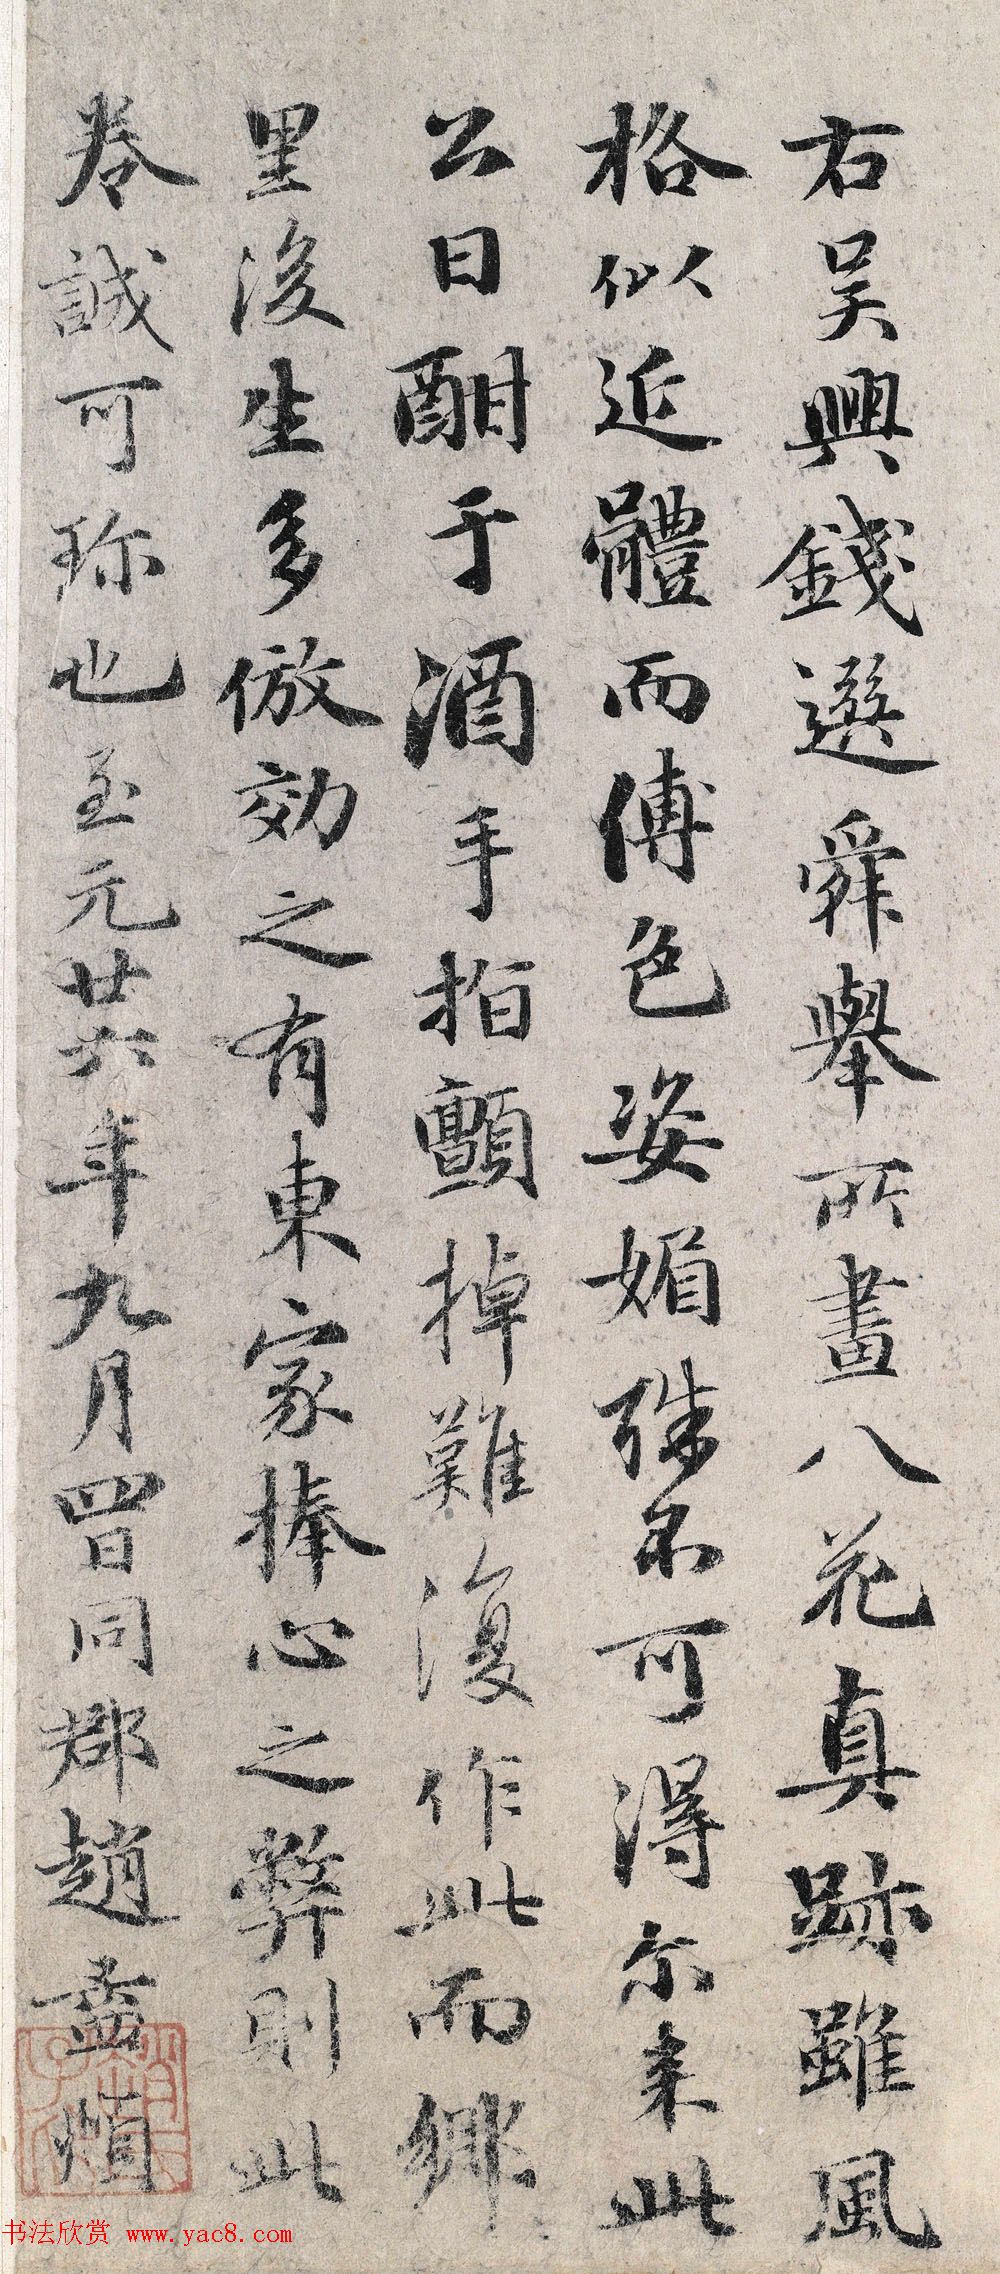 右吴興錢選舜舉所畫八花真跡雖風
格似近體而傅色姿媚殊不可得尔来此
公日酣于酒手指顫掉難復作此而鄉
里後生多倣效之有東家捧心之弊則此
卷誠可珎也至元廿六年九月四日同郡趙孟頫
趙氏子昂
书法欣赏 www.yac8.com